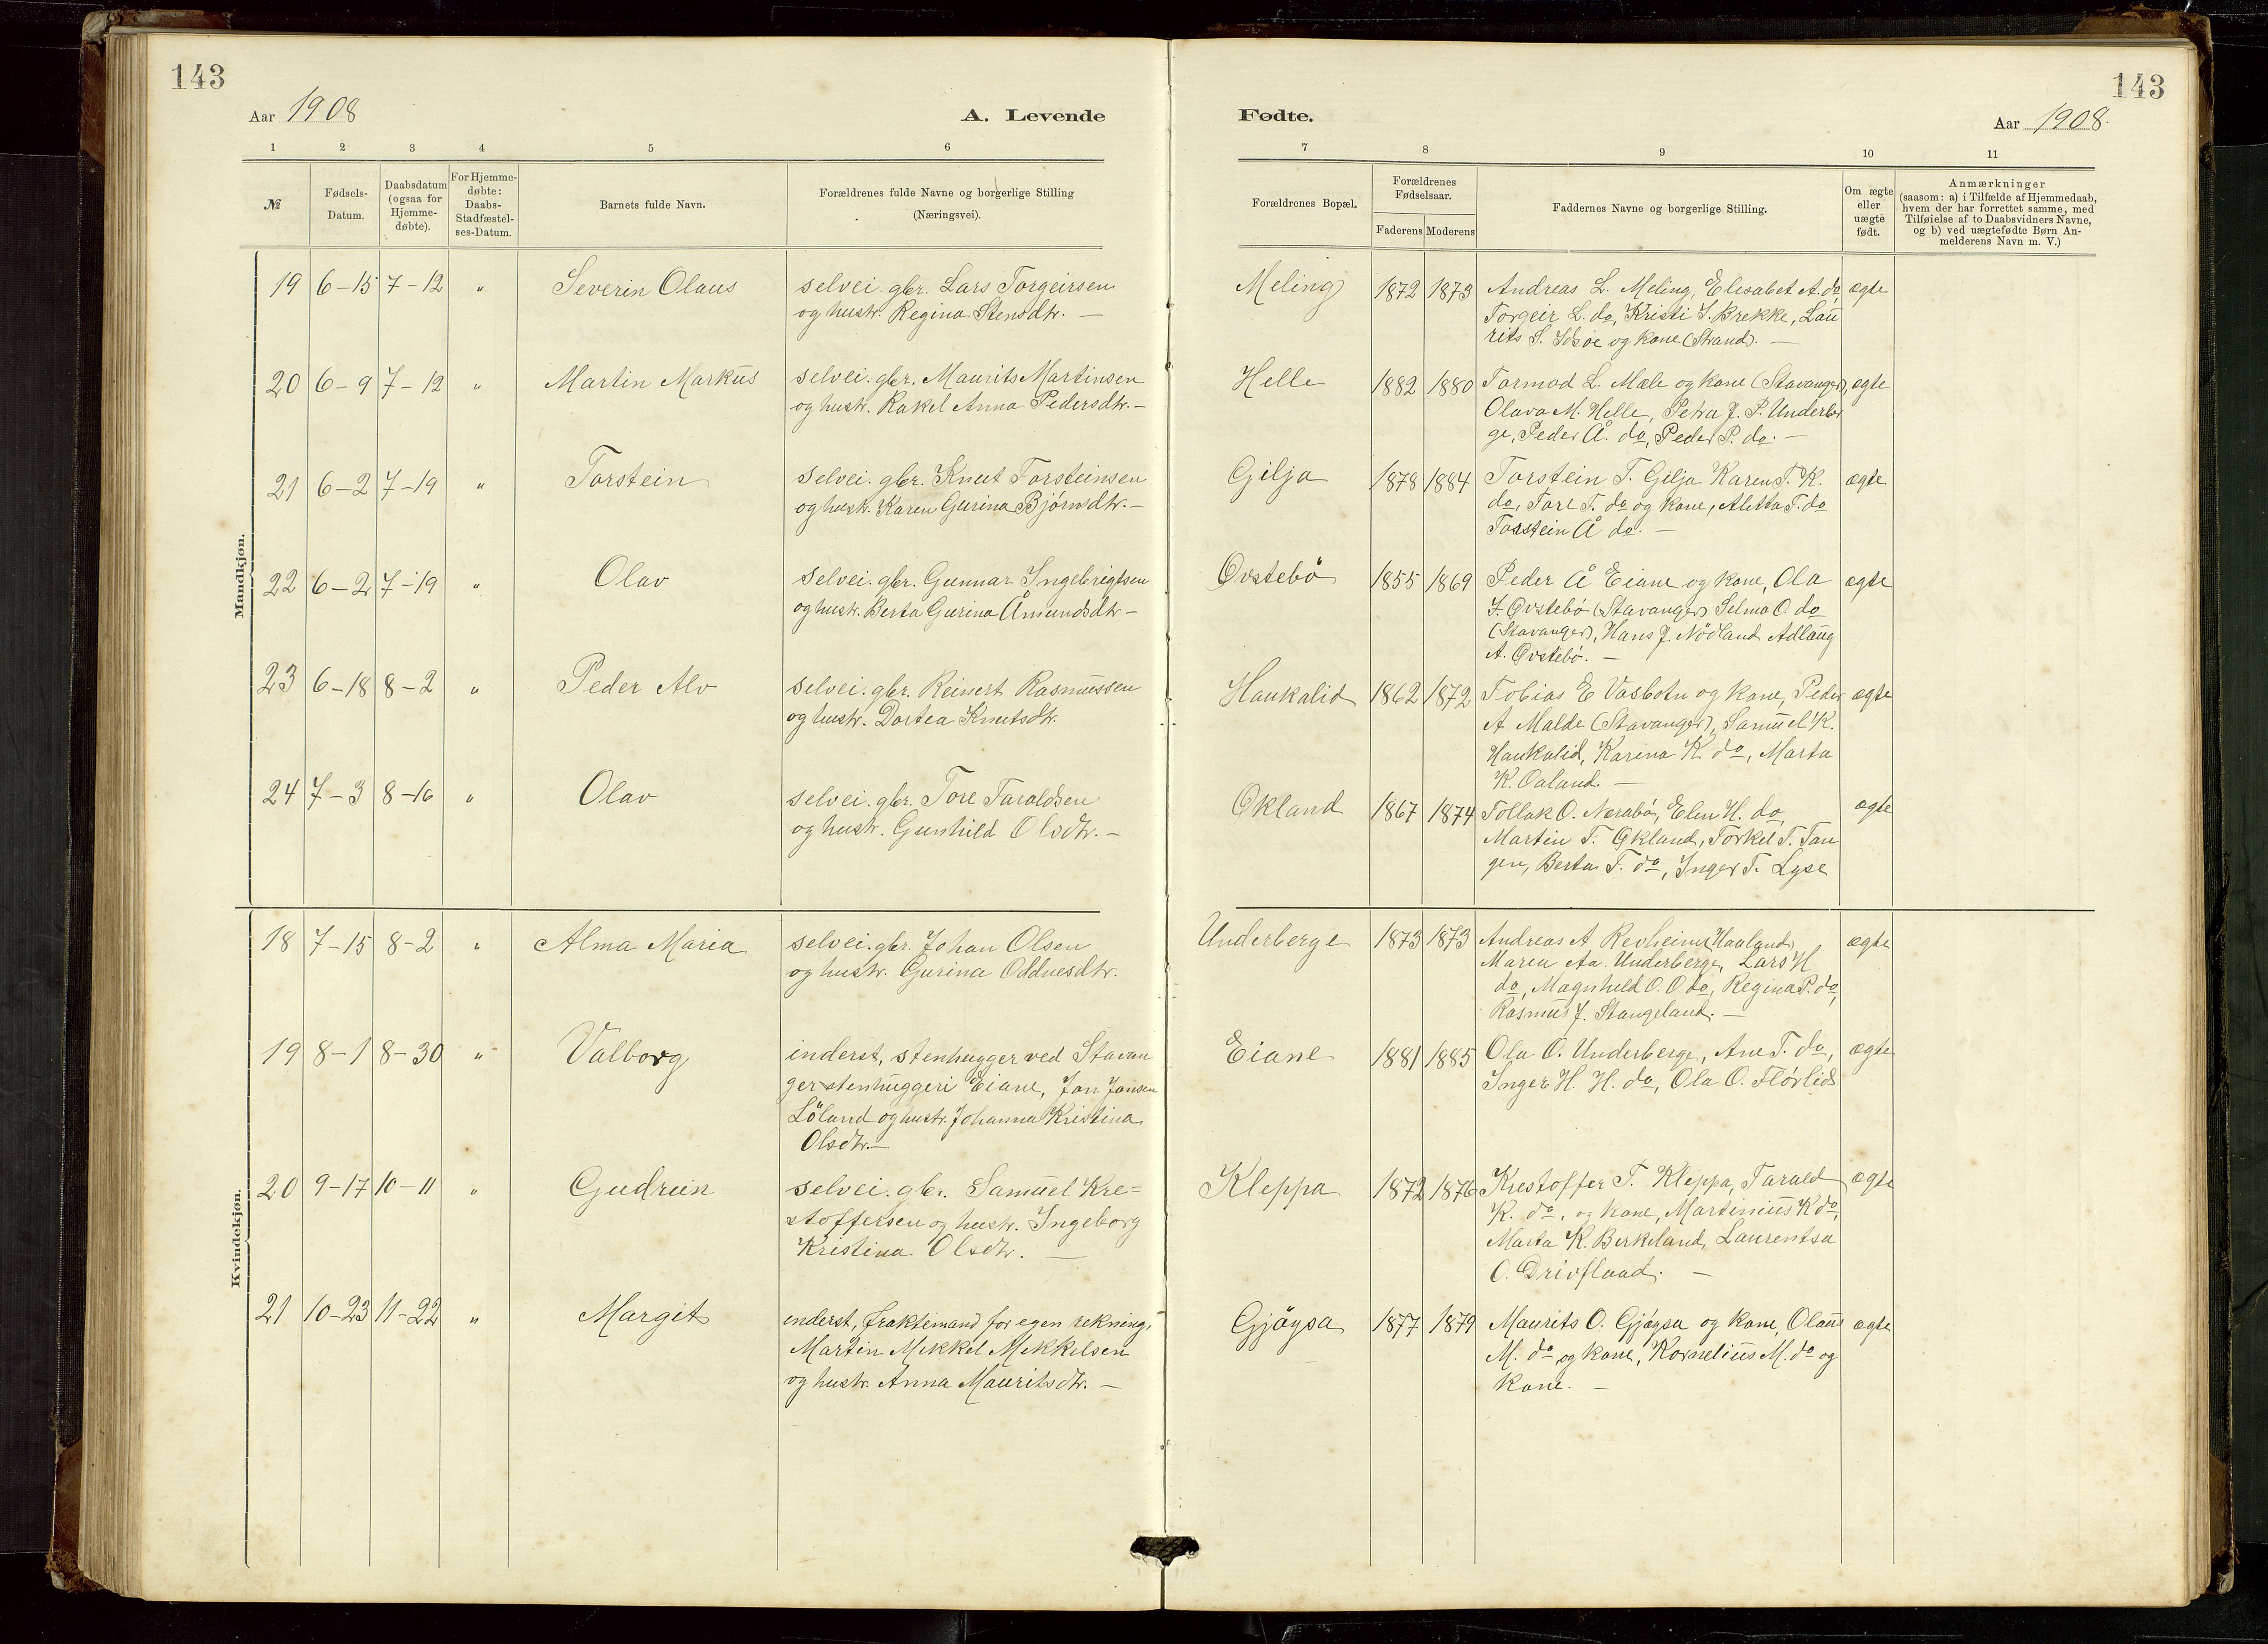 143
Aar 1908
A. Levende
1 2 3 4 5 6
№
Fødsels-
Datum.
Daabsdatum
(ogsaa for
Hjemme-
døbte).
For Hjemme-
døbte:
Daabs-
Stadfæstel-
ses-Datum.
Barnets fulde Navn.
Forældrenes fulde Navne og borgerlige Stilling
(Næringsvei).
Mandkjøn.
19 6-15 7-12 " Severin Olaus selvei. gbr. Lars Torgeirsen
og hustr. Regina Stensdtr. —
20 6-9 7-12 " Martin Markus selvei. gbr. Maurits Martinsen
og hustr. Rakel Anna Pedersdtr. —
21 6-2 7-19 " Torstein selvei. gbr. Knut Torsteinsen
og hustr. Karen Gurina Bjørnsdtr. —
22 6-2 7-19 " Olav selvei. gbr. Gunnar Ingebrigtsen
og hustr. Berta Gurina Åmundsdtr —
23 6-18 8-2 " Peder Alv selvei. gbr. Reinert Rasmussen
og hustr. Dortea Knutsdtr.
24 7-3 8-16 " Olav selvei. gbr. Tore Taraldsen
og hustr. Gunhild Olsdtr. —
Kvindekjøn.
18 7-15 8-2 " Alma Maria selvei. gbr. Johan Olsen
og hustr. Gurina Oddnesdtr.
19 8-1 8-30 " Valborg inderst, stenhugger ved Stavan
ger stenhuggeri Eiane, Jan Jansen
Löland og hustr. Johanna Kristina
Olsdtr. —
20 9-17 10-11 " Gudrun selvei. gbr. Samuel Kre=
stoffersen og hustr. Ingeborg
Kristina Olsdtr. —
21 10-23 11-22 " Margit inderst, fraktemand for egen rekning,
Martin Mikkel Mikkelsen
og hustr. Anna Mauritsdtr. —
143
Fødte.
Aar 1908.
7 8 9 10 11
Forældrenes Bopæl.
Forældrenes
Fødselsaar.
Faderens Moderens
Faddernes Navne og borgerlige Stilling.
Om ægte
eller
uægte
født.
Anmærkninger
(saasom: a) i Tilfælde af Hjemmedaab,
hvem der har forrettet samme, med
Tilføielse af to Daabsvidners Navne,
og b) ved uægtefødte Børn An-
melderens Navn m. V.)
Meling 1872 1873 Andreas L. Meling, Elisabet A. do, ægte
Torgeir L. do, Kristi S. Brekke, Lau
rits S. Idsøe og kone (Strand). —
Helle 1882 1880 Tormod L. Mæle og kone (Stavanger), ægte
Olava M. Helle, Petra J. P. Underber
ge, Peder Å. do, Peder P. do. —
Gilja 1878 1884 Torstein T. Gilja Karen T. K. ægte
do, Tore T. do og kone, Aletta T. do
Torstein Å do. —
Øvstebö 1855 1869 Peder Å Eiane og kone, Ola ægte
I. Øvstebö (Stavanger) Selma O. do
(Stavanger), Hans J. Nödland Adlaug
A. Øvstebö. —
Haukalid 1862 1872 Tobias E Vasbotn og kone, Peder ægte
A Malde (Stavanger), Samuel K.
Haukalid, Karina K. do, Marta
K. Oaland. —
Økland 1867 1874 Tollak O. Nerabö, Elen H. do, ægte
Martin T. Økland, Torkel T. Tan
gen, Berta T. do, Inger T. Lyse
Underberge 1873 1873 Andreas A Revheim (Haaland) ægte
Maren Aa. Underberge, Lars H
do, Magnhild O. O do, Regina P. do,
Rasmus J. Stangeland. —
Eiane 1881 1885 Ola O. Underberge, Ane T. do, ægte
Inger H. H. do, Ola O. Flörlid
Kleppa 1872 1876 Krestoffer T. Kleppa, Tarald ægte
K. do, og kone, Martinius K do,
Marta K. Birkeland, Laurentsa
O. Drivfland. —
Gjöysa 1877 1879 Maurits O. Gjöysa og kone, Olaus ægte
M. do og kone, Kornelius M. do og
kone. —